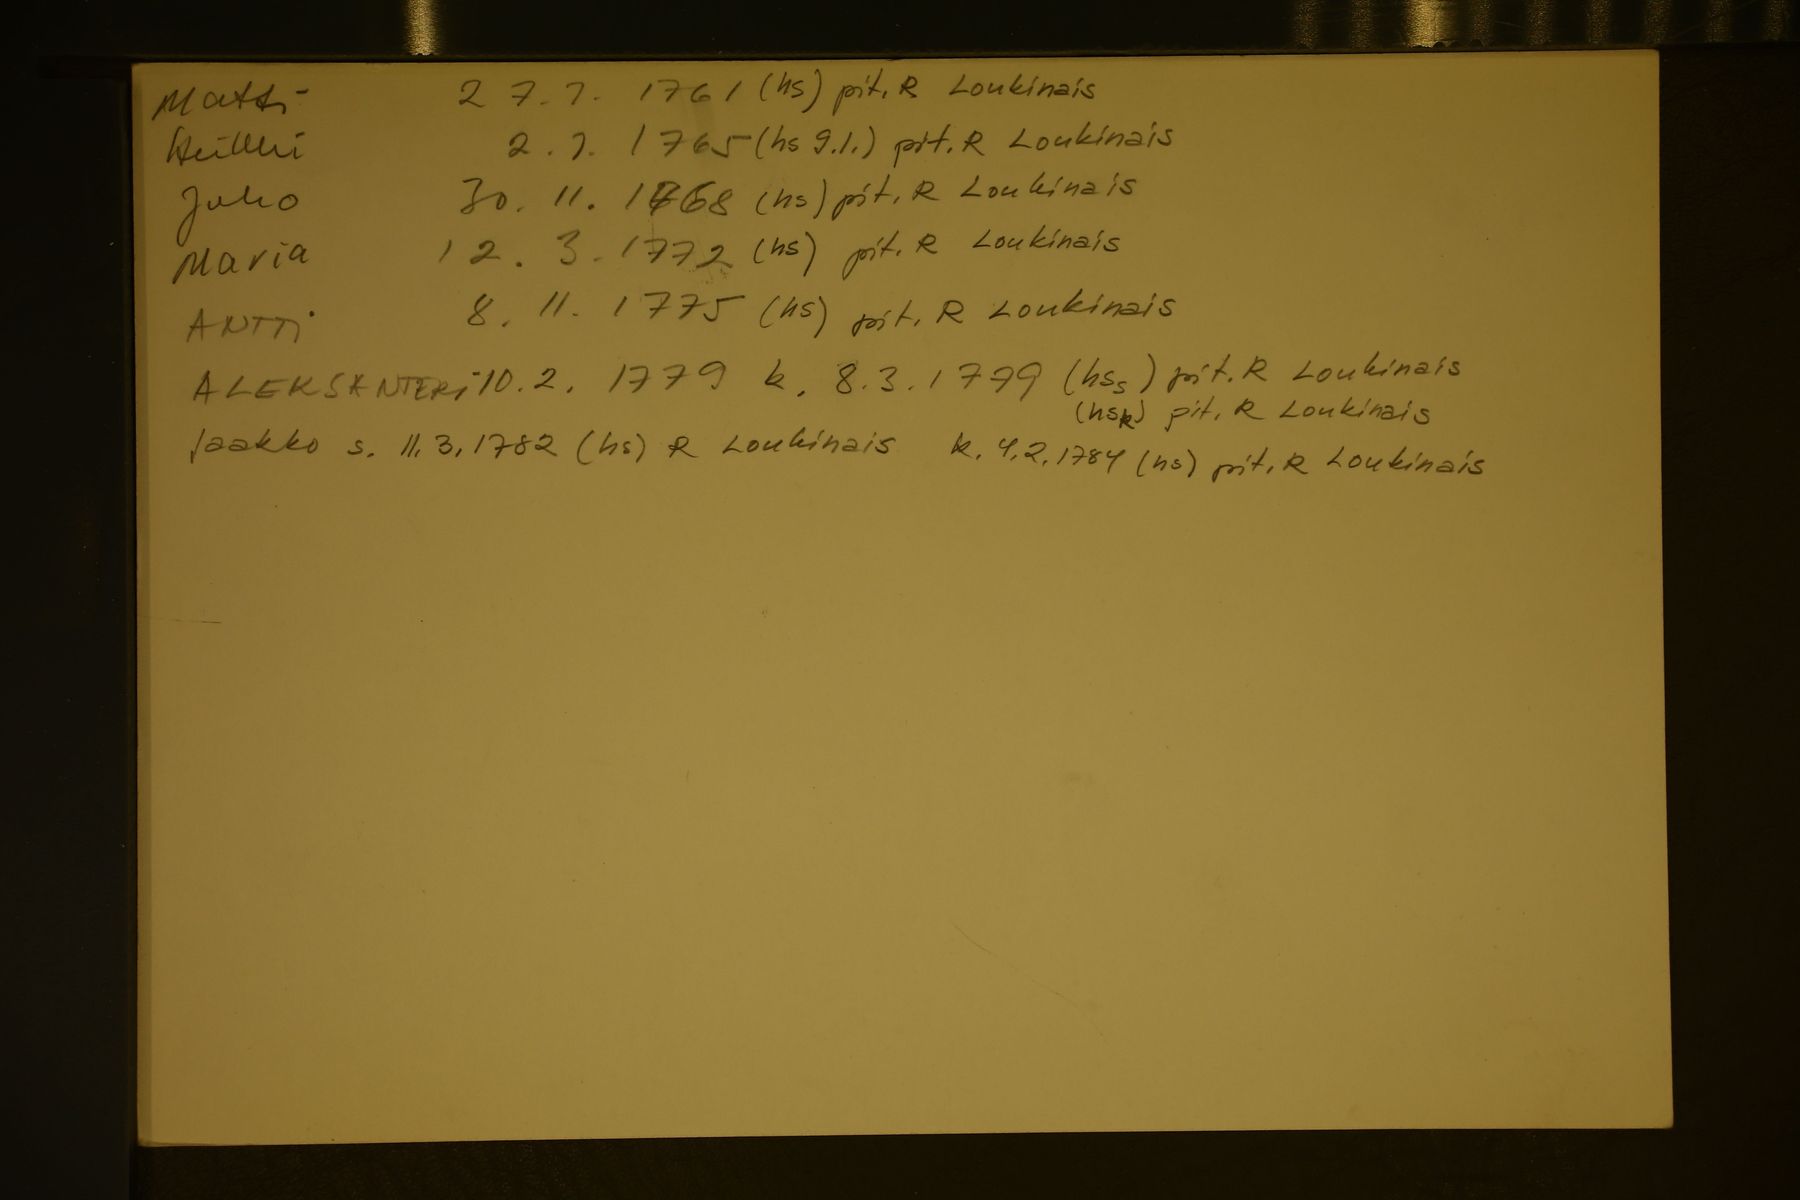 Matti 27.7. 1761 (hs) pit. R Loukinais
Heikki 2.7. 1765 (hs 9.1.) pit. R Loukinais
Juho 30. 11. 1768 (hs) pit. R Loukinais
Maria 12. 3. 1772 (hs) pit. R Loukinais
ANTTi 8. 11. 1775 (hs) pit. R Loukinais
ALEKSANTERi 10.2. 1779 k. 8.3.1779 (hss) pit. R Loukinais
(hsk) pit. R Loukinais
Jaakko s. 11.3.1782 (hs) R Loukinais k. 4.2.1784 (hs) pit. R Loukinais